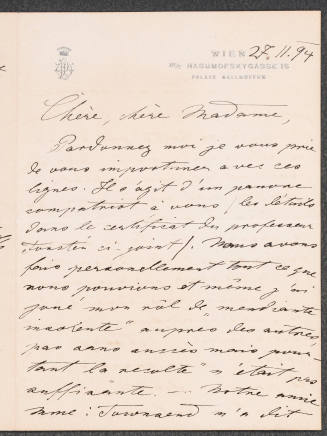 WIEN 27.II.94
III/2 RASUMOFSKYGASSE 15
PALAIS
Chère, chère Madame,
Pardonnez moi je vous prie
de vous importuner avec ces
lignes. Il s'agit d'un pauvre
compatriot à vous / les details
dans le certificat du professeur
ci joint /. Nous avons
fais personellement tout ce que
nous pouvions et même j'ai
joué mon rôl de "mendiante
insolente" aupres des autres,
pas sans succès mais pour-
tant la recolte "n'etait pas
suffisante. — Notre amie
Mme: Townsend m'a dit